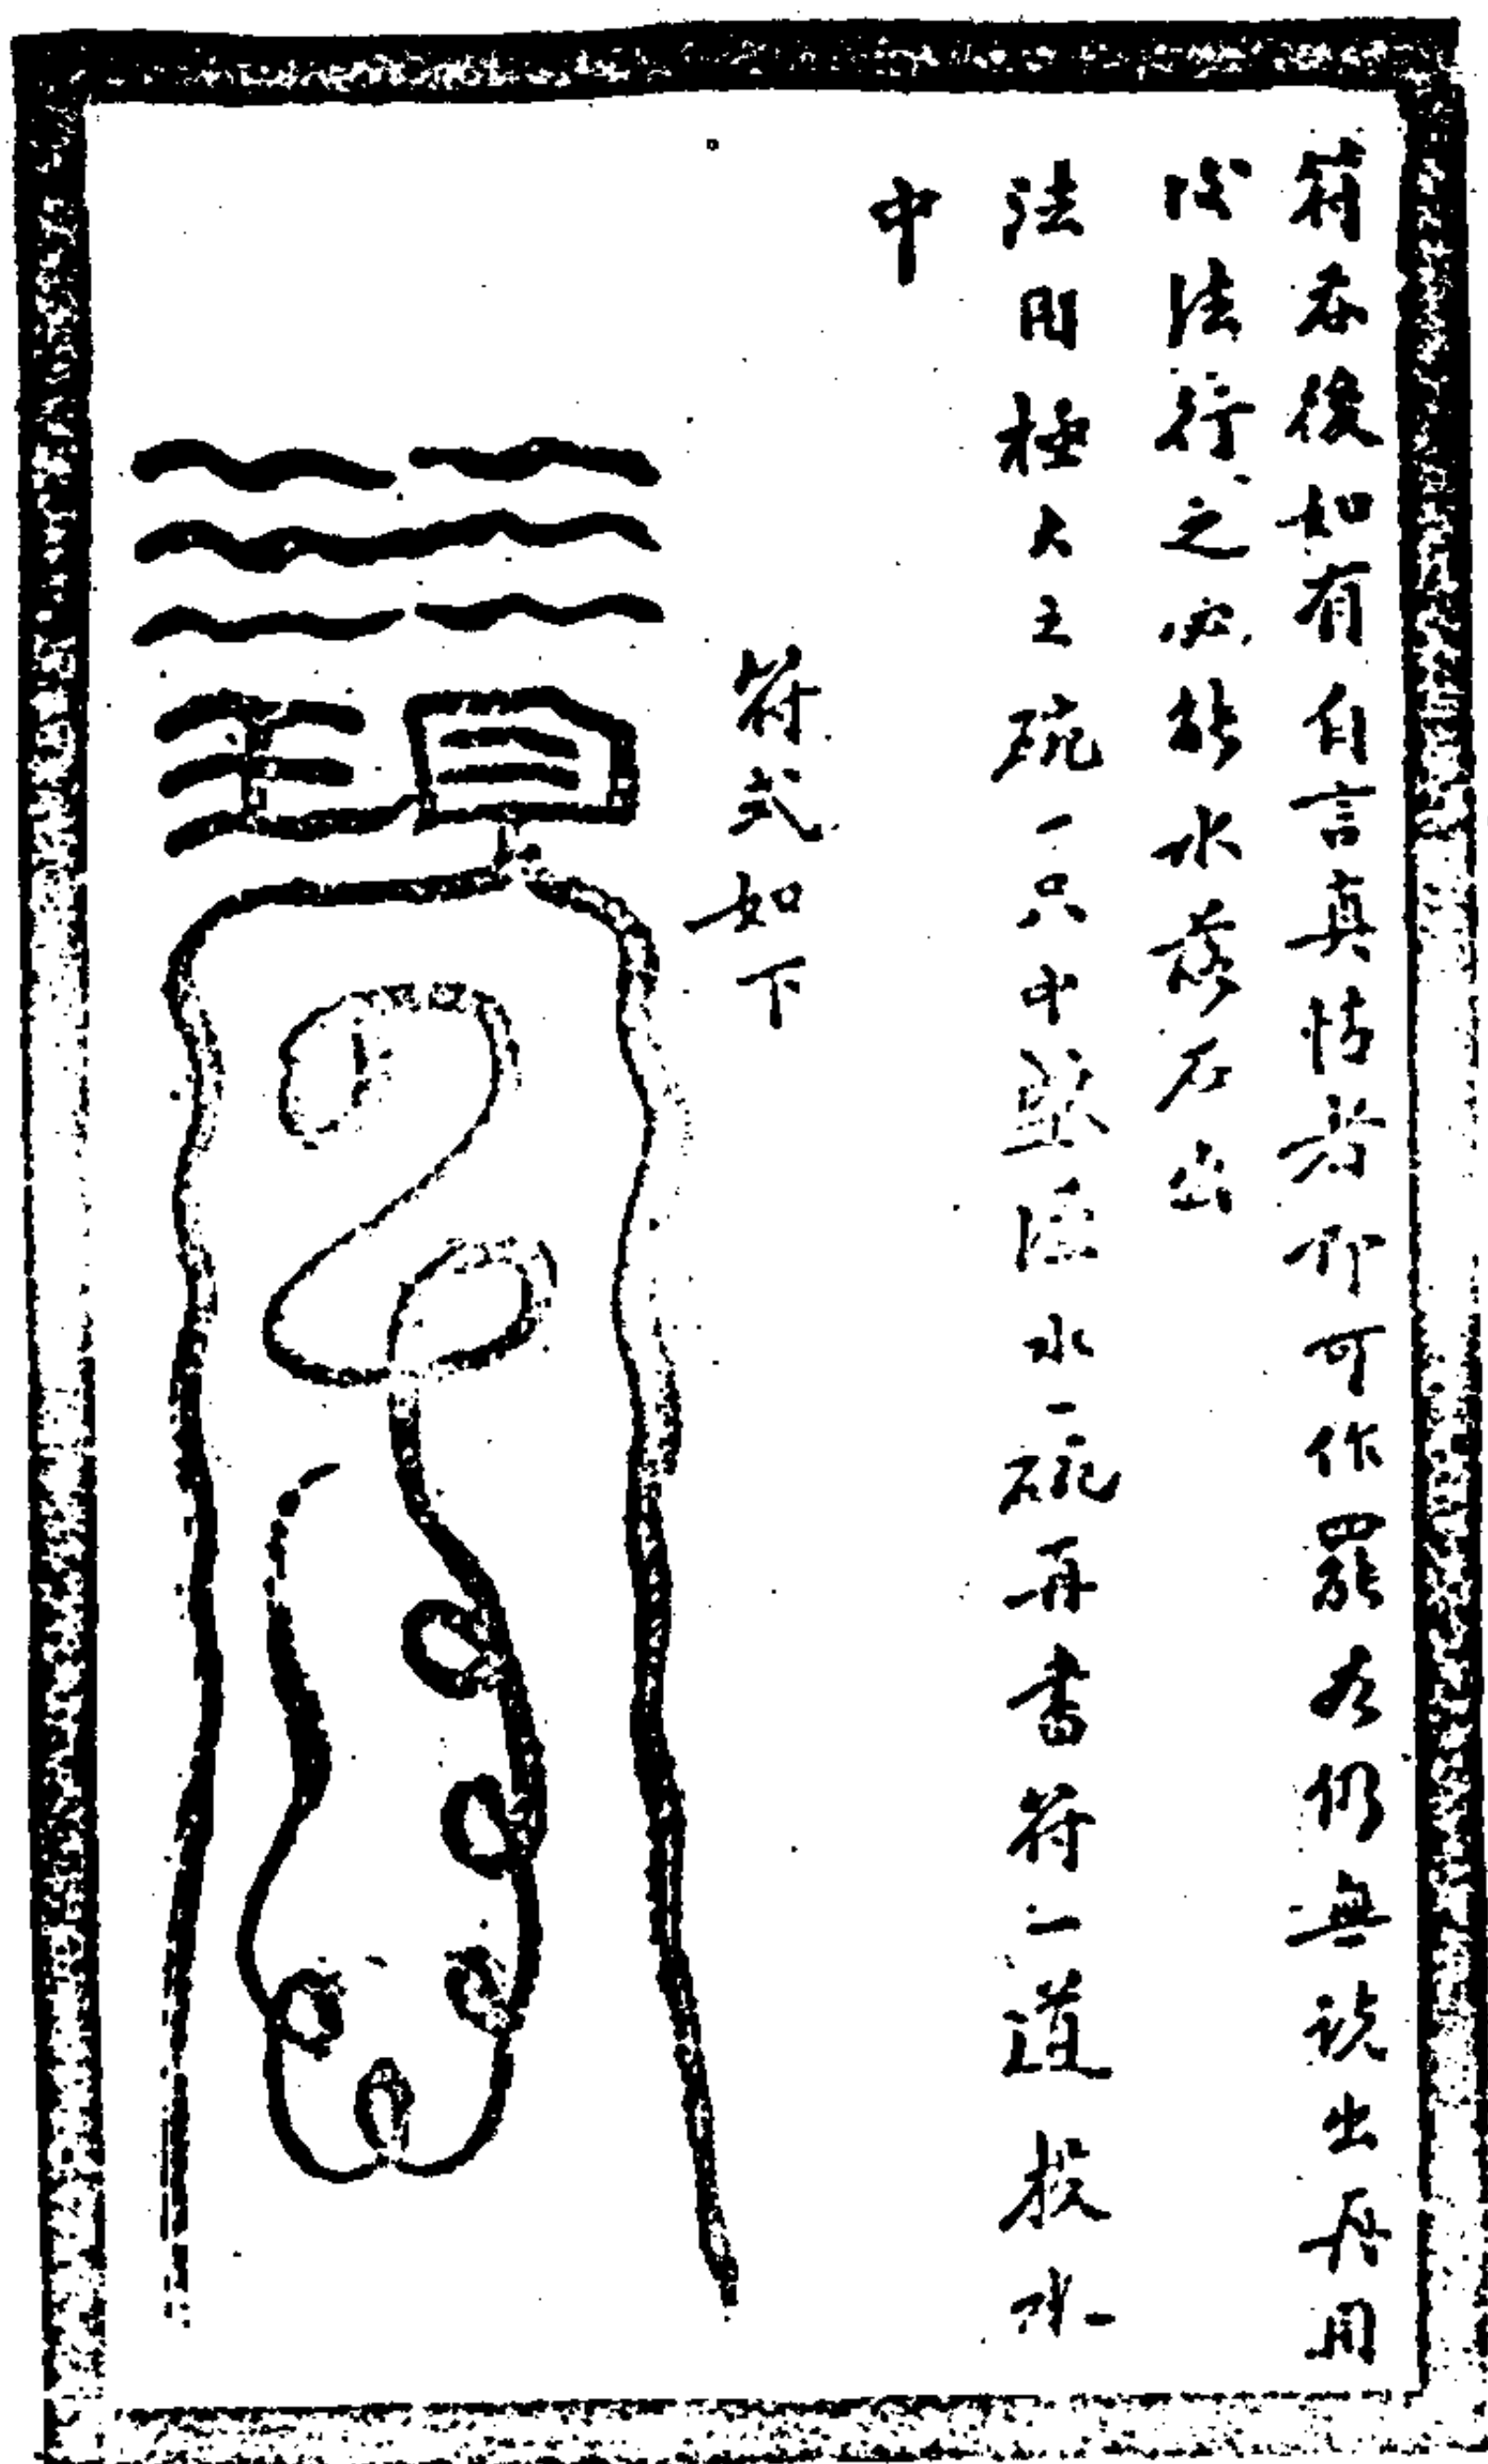 符吞後如有自言真情者即可作罷如仍無說出再用
此法行之必能水落石出
法用極大之碗一只中盛清水一碗再書符一道投水
中
符式如下